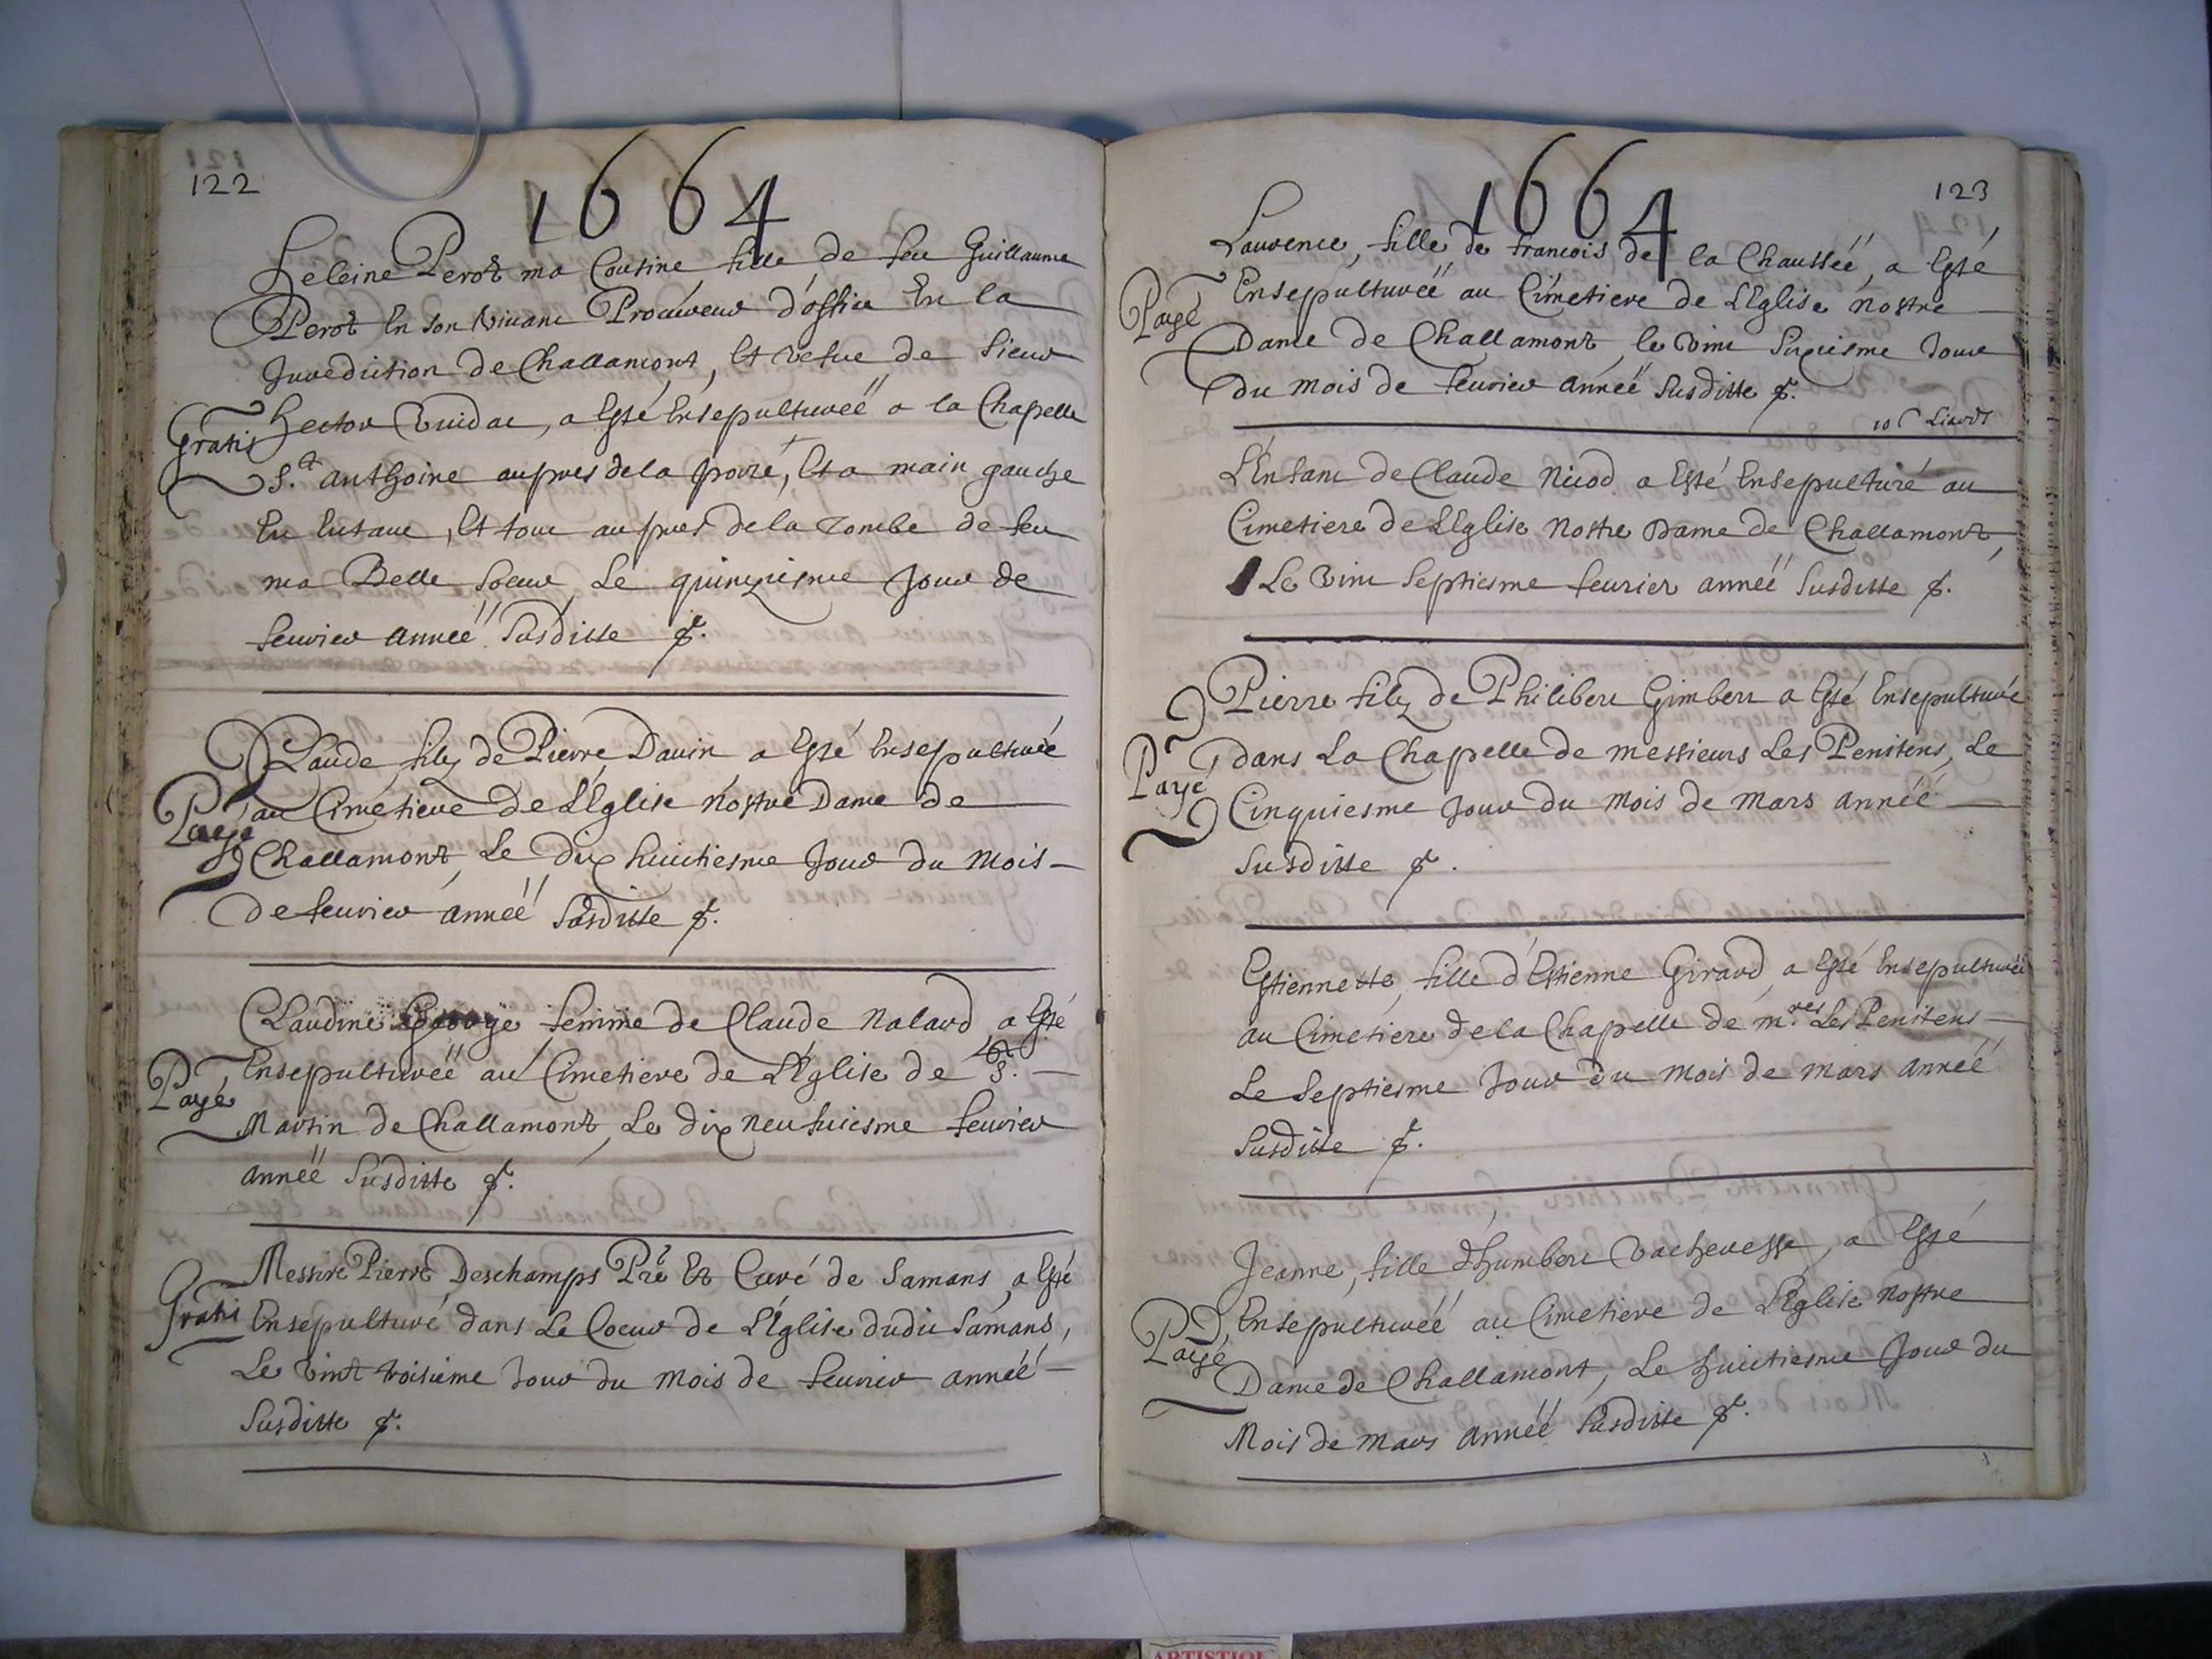 122
1664
Heleine Perot ma Cousine fille de feu Guillaume
Perot En son viuant Procureur d'office En la
Jurediction de Challamont, Et vefue de Sieur
Gratis
Hector, a Esté Ensepulturéë a la Chapelle
St. anthoine aupres de la porte, Et a main gauche
En Entant, Et tout aupres de la Tombe de feu
ma Belle Soeur, Le quinziesme Jour de
feurier annéë Susditte &.
Claude filz de Pierre Dauin a Esté Ensepulturée
Payé
au Cimetiere de L'Eglise Nostre Dame de
Challamont, Le dix huictiesme Jour du Mois
De feurier annéë Susditte &.
Claudine femme de Claude Nalard, a Esté
Payé
Ensepulturéë au Cimetiere de L'Eglise de St.
Martin de Challamont, Le dix neufuiesme feurier
annéë Susditte &.
Messire Pierre Deschamps Pre Et Curé de Samans, a Esté
Gratis
Ensepulturé dans Le Coeur de L'Eglise dudit Samans,
Le vint troisieme Jour du Mois de feurier annéë
Susditte &.
123
1664
Laurence, fille de francois de la Chausséë, a Esté
Payé
Ensepulturéë au Cimetiere de L'Eglise Nostre
Dame de Challamont, le vint Sixiesme Jour
du mois de feurier annéë Susditte &.
10 Liards
L'Enfant de Claude Nicod a Esté Ensepulturé au
Cimetiere de L'Eglise Nostre Dame de Challamont,
Le vint Septiesme feurier annéë Susditte &.
Pierre filz de Philibert Gimbert a Esté Ensepulturée
Payé
dans La Chapelle de messieurs Les Penitens, Le
Cinquiesme Jour du Mois de Mars annéë
Susditte &.
Estiennette, fille d'Estienne Girard, a Esté Ensepulturéë
au Cimetiere de la Chapelle de mres Les Penitens
Le Septiesme Jour du Mois de mars annéë
Susditte &.
Jeanne, fille d'humbert Vacheresse, a Esté
Payé
Ensepulturéë au Cimetiere de L'Eglise Nostre
Dame de Challamont, Le huictiesme Jour du
Mois de mars annéë Susditte &.